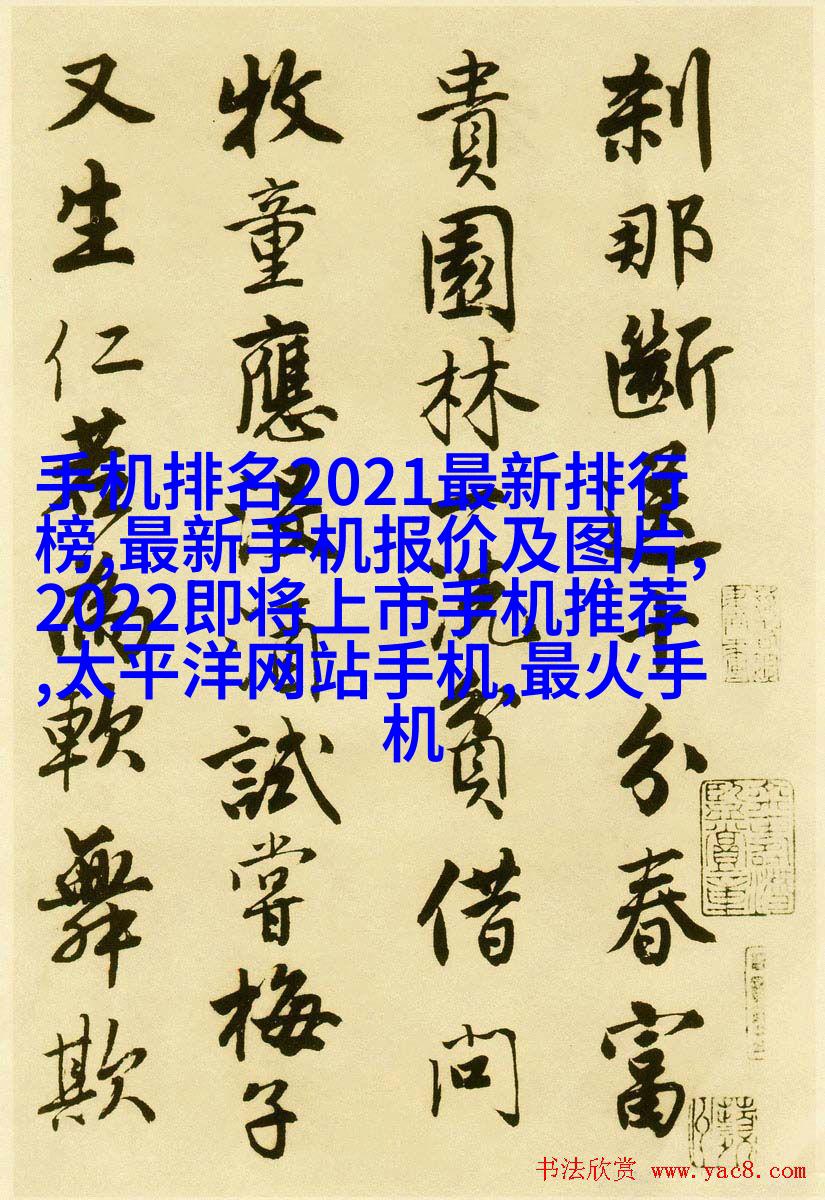 刹那斷送十分春富
貴園林一洗貧借問
牧童應沒酒試嘗梅子
又生仁若為軟舞欺
手机排名2021最新排行
榜,最新手机报价及图片,
2022即将上市手机推荐
,太平洋网站手机,最火手
机
书法欣赏 www.yac8.com